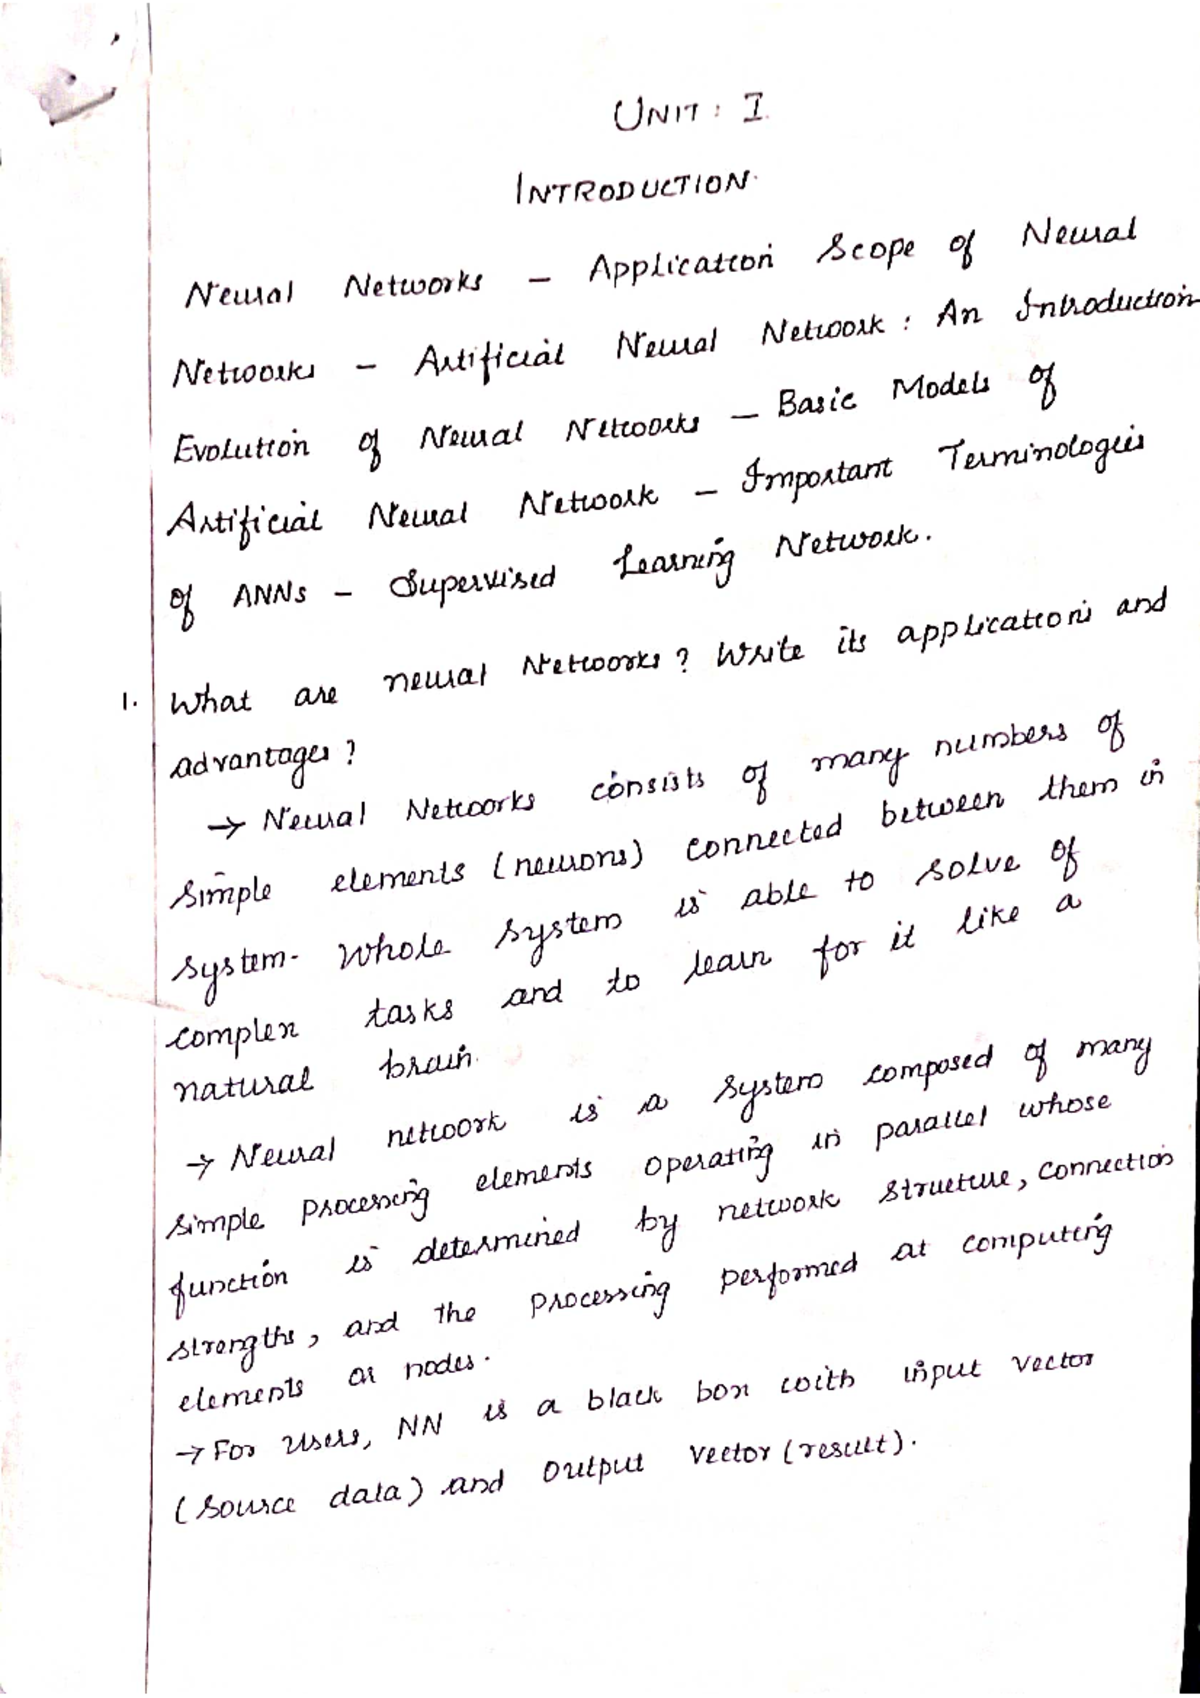 UNIT : I
INTRODUCTION.
Neural Networks – Application Scope of Neural
Networks – Artificial Neural Network : An Introduction
Evolution of Neural Networks – Basic Models of
Artificial Neural Network – Important Terminologies
of ANNs – Supervised Learning Network.
1. What are neural Networks? Write its applications and
advantages?
→ Neural Networks consists of many numbers of
simple elements (neurons) connected between them in
system. Whole system is able to solve of
complex tasks and to learn for it like a
natural brain.
→ Neural network is a system composed of many
simple processing elements operating in parallel whose
function is determined by network structure, connection
strengths, and the processing performed at computing
elements or nodes.
→ For Users, NN is a black box with input vector
(source data) and output vector (result).